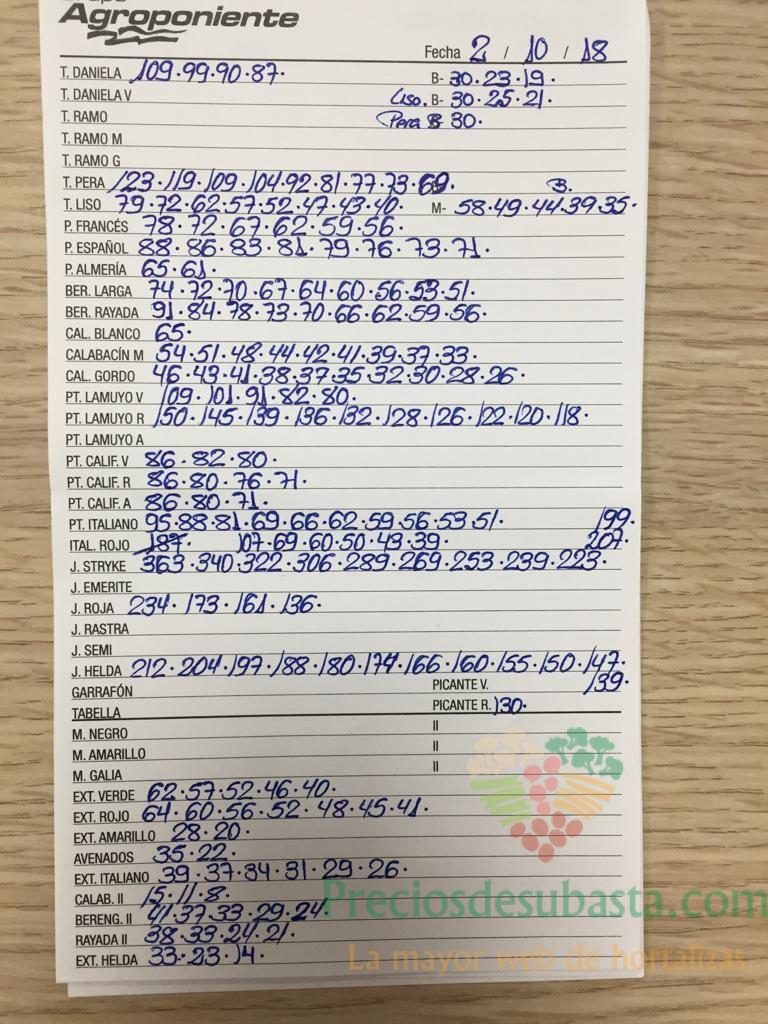 Agroponiente
Fecha 2 / 10 / 18
T. DANIELA 109·99·90·87· B- 30·23·19·
T. DANIELA V Liso. B- 30·25·21·
T. RAMO Pera B 30·
T. RAMO M
T. RAMO G
T. PERA 123·119·109·104·92·81·77·73·69· B.
T. LISO 79·72·62·57·52·47·43·40· M- 58·49·44·39·35·
P. FRANCÉS 78·72·67·62·59·56·
P. ESPAÑOL 88·86·83·81·79·76·73·71·
P. ALMERÍA 65·61·
BER. LARGA 74·72·70·67·64·60·56·53·51·
BER. RAYADA 91·84·78·73·70·66·62·59·56·
CAL. BLANCO 65·
CALABACÍN M 54·51·48·44·42·41·39·37·33·
CAL. GORDO 46·43·41·38·37·35·32·30·28·26·
PT. LAMUYO V 109·101·91·82·80·
PT. LAMUYO R 150·145·139·136·132·128·126·122·120·118·
PT. LAMUYO A
PT. CALIF. V 86·82·80·
PT. CALIF. R 86·80·76·71·
PT. CALIF. A 86·80·71·
PT. ITALIANO 95·88·81·69·66·62·59·56·53·51· 199·
ITAL. ROJO 187 107·69·60·50·43·39· 207·
J. STRYKE 363·340·322·306·289·269·253·239·223·
J. EMERITE
J. ROJA 234·173·161·136·
J. RASTRA
J. SEMI
J. HELDA 212·204·197·188·180·174·166·160·155·150·147·
GARRAFÓN PICANTE V. 139·
TABELLA PICANTE R. 130·
M. NEGRO II
M. AMARILLO II
M. GALIA II
EXT. VERDE 62·57·52·46·40·
EXT. ROJO 64·60·56·52·48·45·41·
EXT. AMARILLO 28·20·
AVENADOS 35·22·
EXT. ITALIANO 39·37·34·31·29·26·
CALAB. II 15·11·8·
BERENG. II 41·37·33·29·24·
RAYADA II 38·33·24·21·
EXT. HELDA 33·23·14·
Preciosdesubasta.com
La mayor web de hortalizas